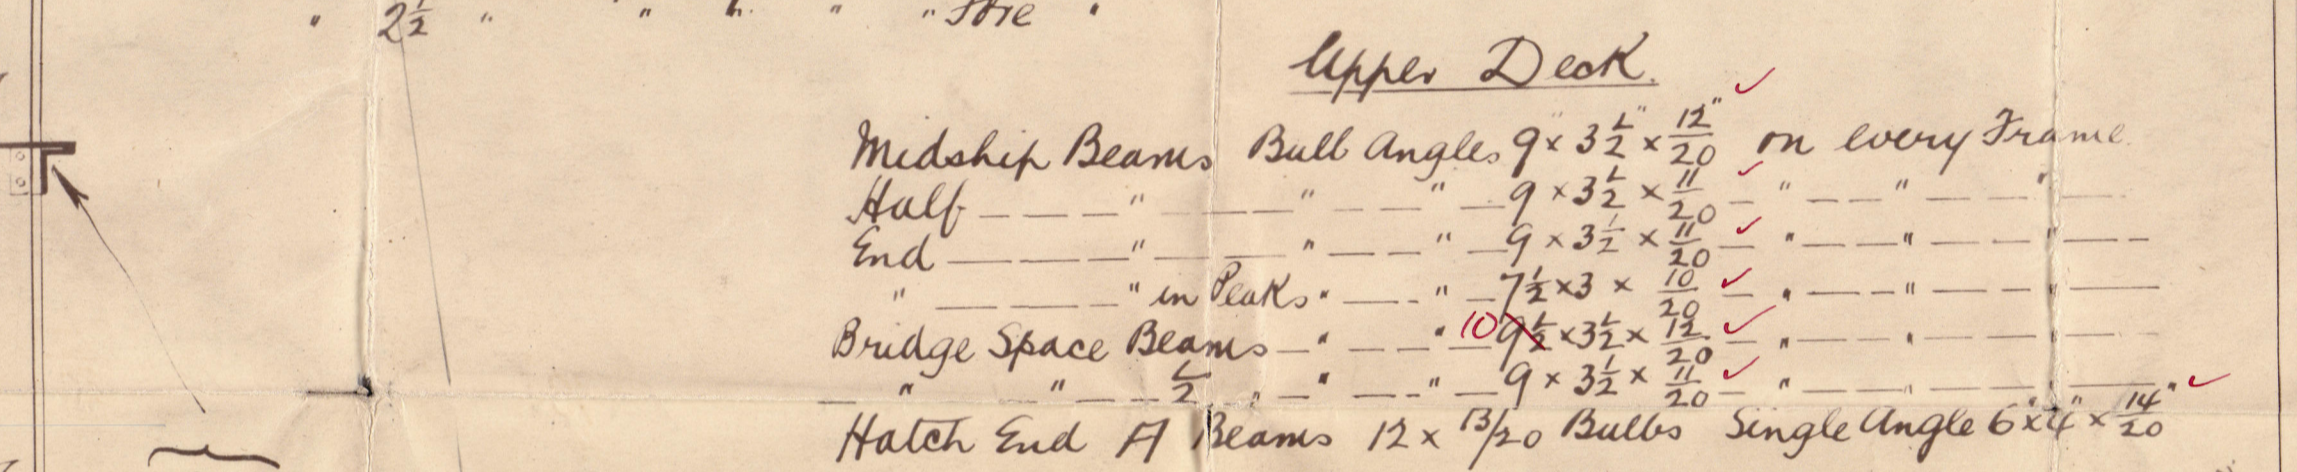 " 2½ " " " " " Fore "
Upper Deck.
Midship Beams Bulb Angles 9 × 3½" × 12/20" on every Frame.
Half — — — " — — — " — — — " — 9 × 3½ × 11/20 — " — — " — — " — —
End — — — — " — — — " — — — " — 9 × 3½ × 11/20 — " — — " — — — " — —
" — — — — " in Peaks " — — " — 7½ × 3 × 10/20 — " — — " — — — " — —
Bridge Space Beams — " — — " — 10 9½ × 3½ × 12/20 — " — — " — — — " — —
" — — " — — ½ — " — " — — " — 9 × 3½ × 11/20 — " — — — " — — — — "
Hatch End A Beams 12 × 13/20 Bulbs Single Angle 6" × 4" × 14/20